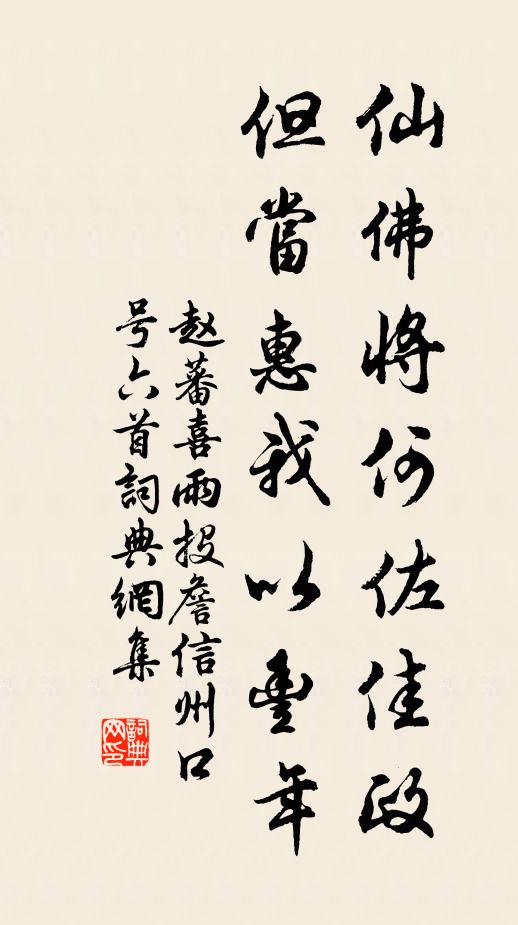 仙佛將何佐佳政
但當惠我以豐年
赵蕃喜雨投詹信州口
号六首詞典網集
詞典網印